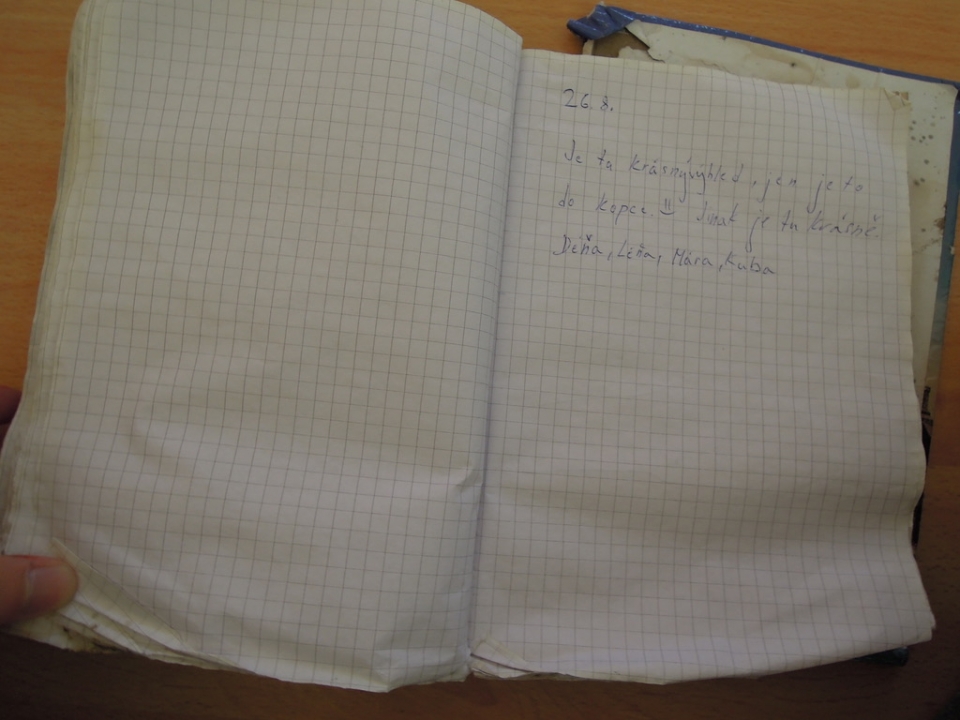 26.8.
Je ta krásnývýhled, jen je to
do kopce. Jinak je tu krásně.
Déňa, Léňa, Mára, Kuba